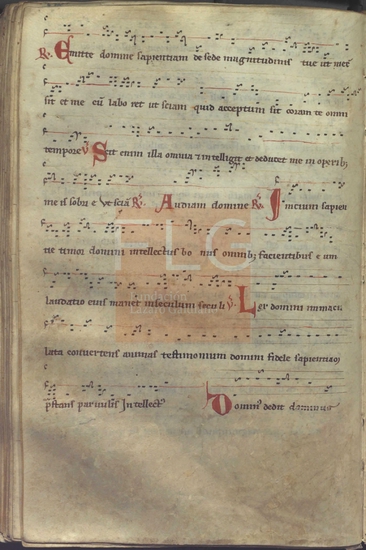 ℟. Emitte domine sapientiam de sede magnitudinis tue ut mecū
sit et me cū labo ret ut sciam quid acceptum sit coram te omni
tempore ℣ Scit enim illa omnia & intelligit et deducet me in operib;
me is sobri e Ut sciā ℟. Audiam domine ℟. Inicium sapien
tie timor domini intellectus bo nus omnib; facientibus e um
laudatio eius manet in seculum seculi ℣. Lex domini inmacu
lata convertens animas testimonium domini fidele sapientiam
p̄stans parvulis Intellect᾿ Domin᾿ dedit
FLG
Lázaro Galdiano